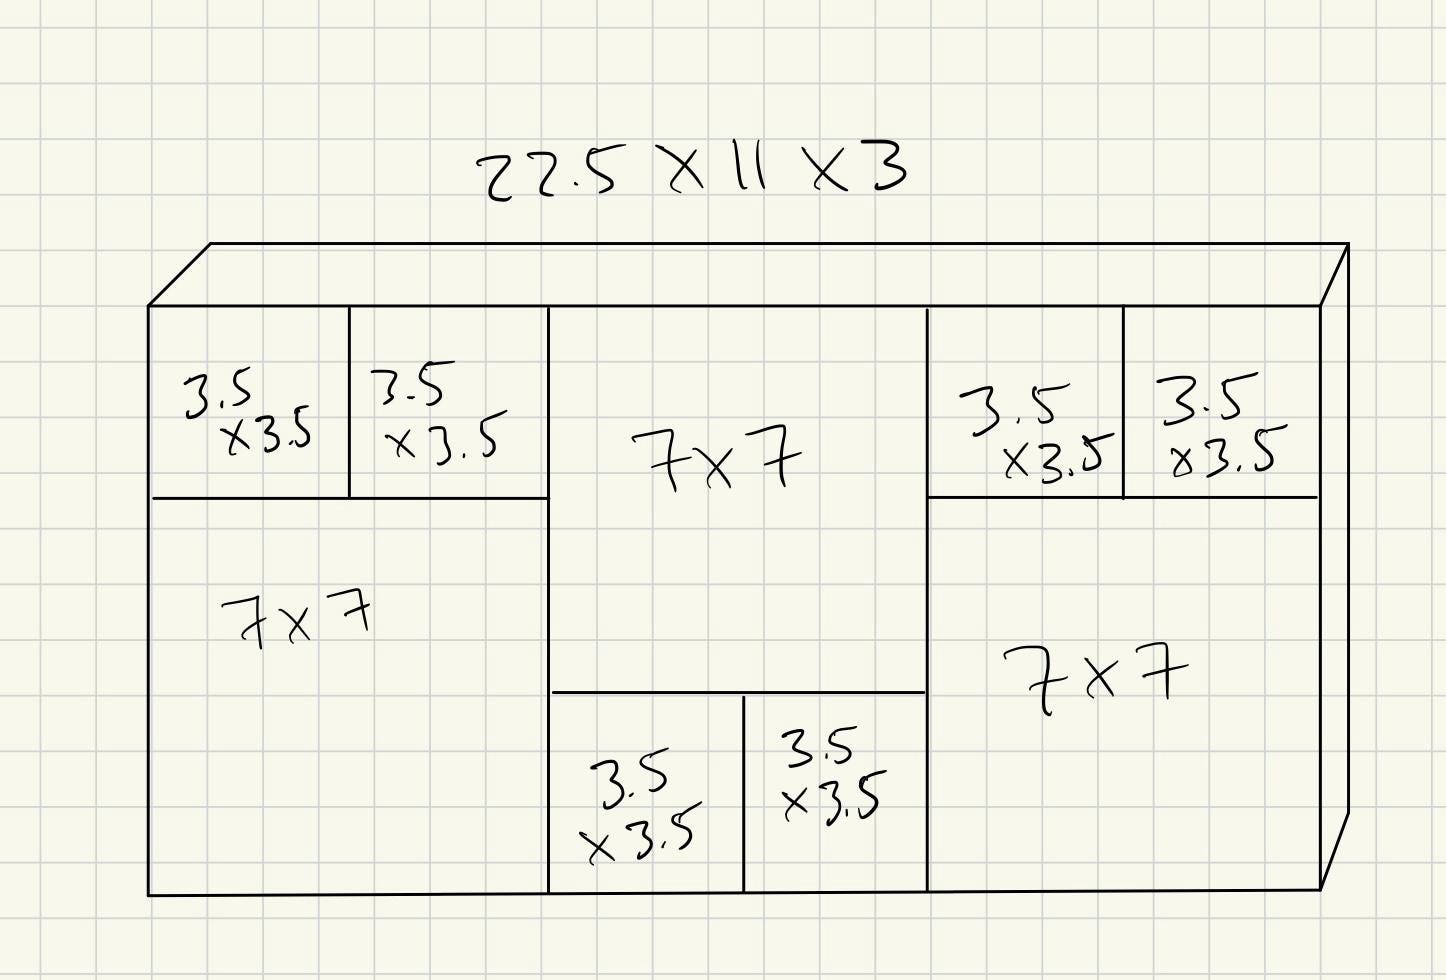 22.5 x 11 x 3
3.5
x3.5
3.5
x3.5
7x7
3.5
x3.5
3.5
x3.5
7x7
7x7
3.5
x3.5
3.5
x3.5